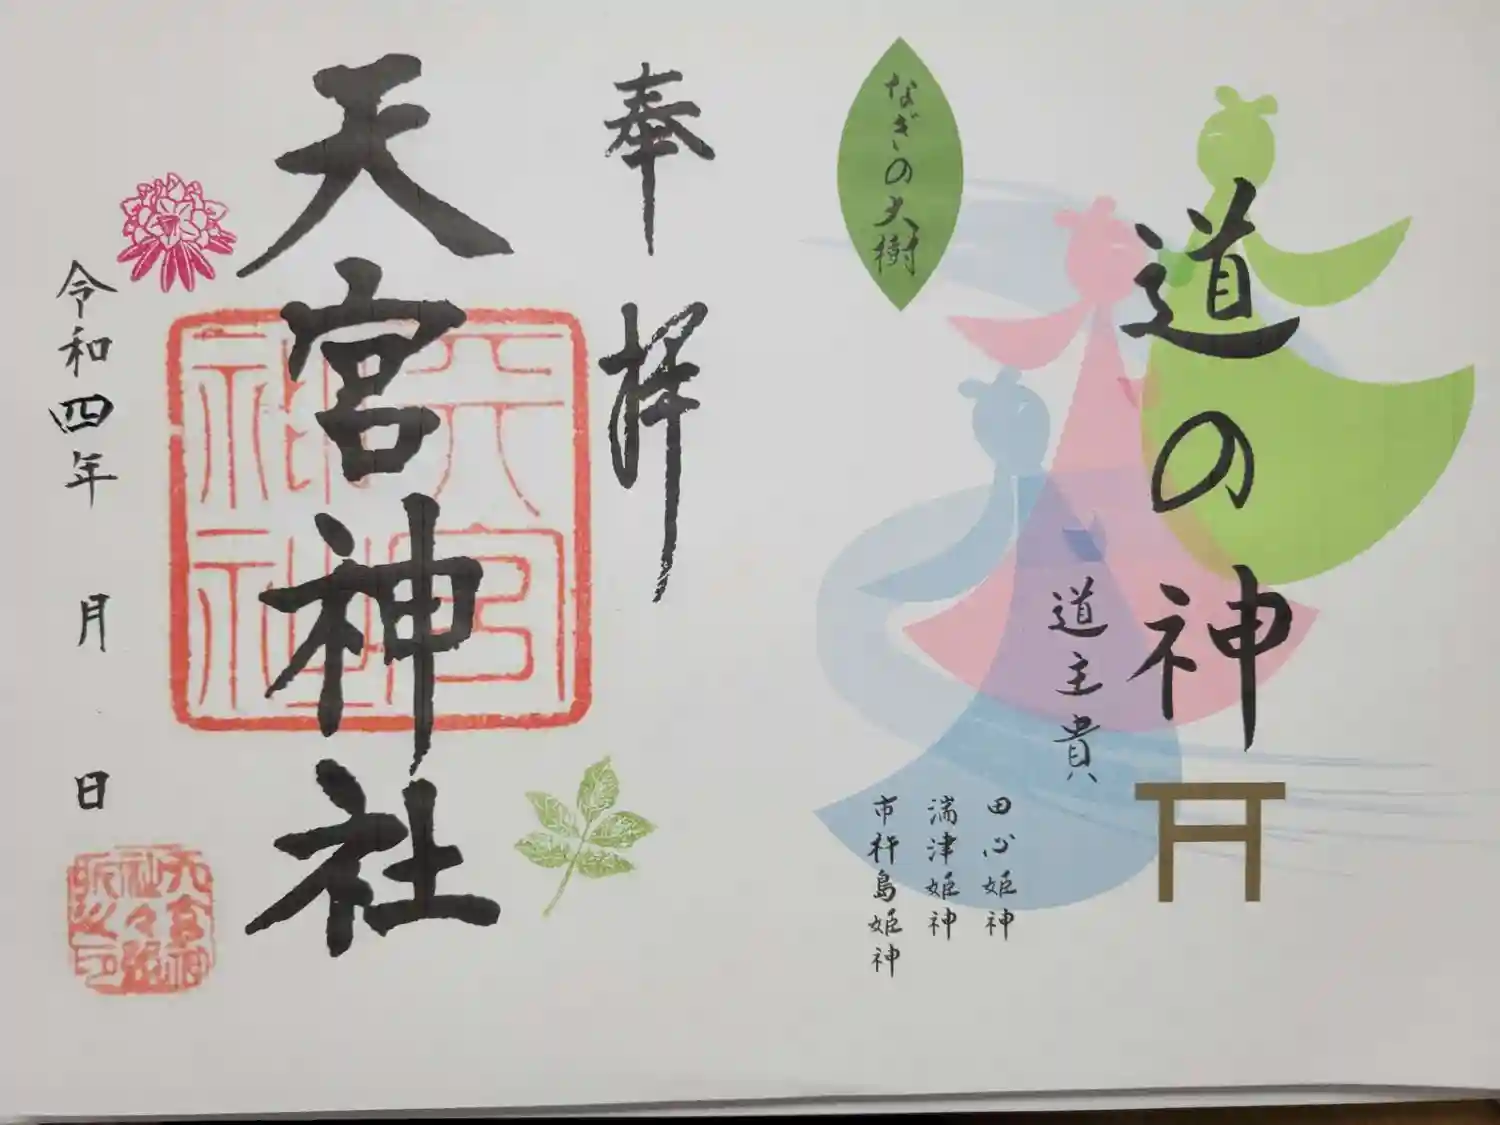 道の神
道主貴
なぎの大樹
田心姫神
湍津姫神
市杵島姫神
奉拝
天宮神社
天宮
神社
令和四年 月 日
天宮神
社々務
所之印